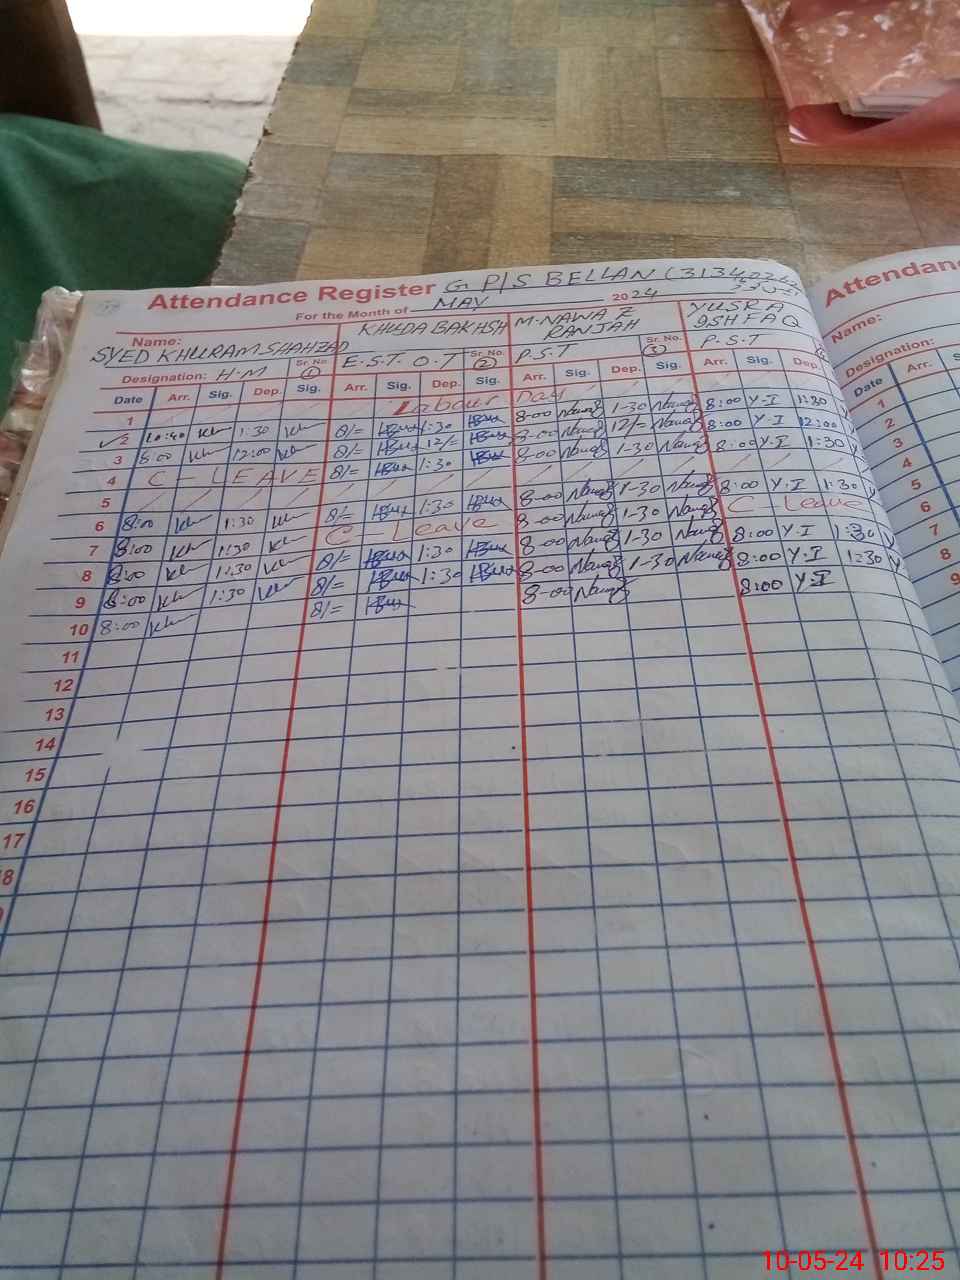 Attendance Register G P/S BELLAN (3134026
For the Month of MAY 2024
Name: SYED KHURAM SHAHZAD KHUDA BAKHSH M.NAWAZ RANJAH YUSRA ISHFAQ
Designation: H.M Sr. No. 1 E.S.T. O.T Sr. No. 2 P.S.T Sr. No. 3 P.S.T
Date Arr. Sig. Dep. Sig. Arr. Sig. Dep. Sig. Arr. Sig. Dep. Sig. Arr. Sig. Dep.
1 Labour Day
2 10:40 1:30 8/= 1:30 8-00 Nawaz 1-30 Nawaz 8:00 Y.I 1:30
3 8:00 12:00 8/= 12/= 8-00 Nawaz 12/= Nawaz 8:00 Y.I 12:00
4 C - LEAVE 8/= 1:30 8-00 Nawaz 1-30 Nawaz 8:00 Y.I 1:30
5
6 8:00 1:30 8/= 1:30 8-00 Nawaz 1-30 Nawaz 8:00 Y.I 1:30
7 8:00 1:30 C - Leave 8-00 Nawaz 1-30 Nawaz C - Leave
8 8:00 1:30 8/= 1:30 8-00 Nawaz 1-30 Nawaz 8:00 Y.I 1:30
9 8:00 1:30 8/= 1:30 8-00 Nawaz 1-30 Nawaz 8:00 Y.I 1:30
10 8:00 8/= 8-00 Nawaz 8:00 Y.I
11
12
13
14
15
16
17
18
Attendan
Name:
Designation:
Date Arr.
1
2
3
4
5
6
7
8
9
10-05-24 10:25